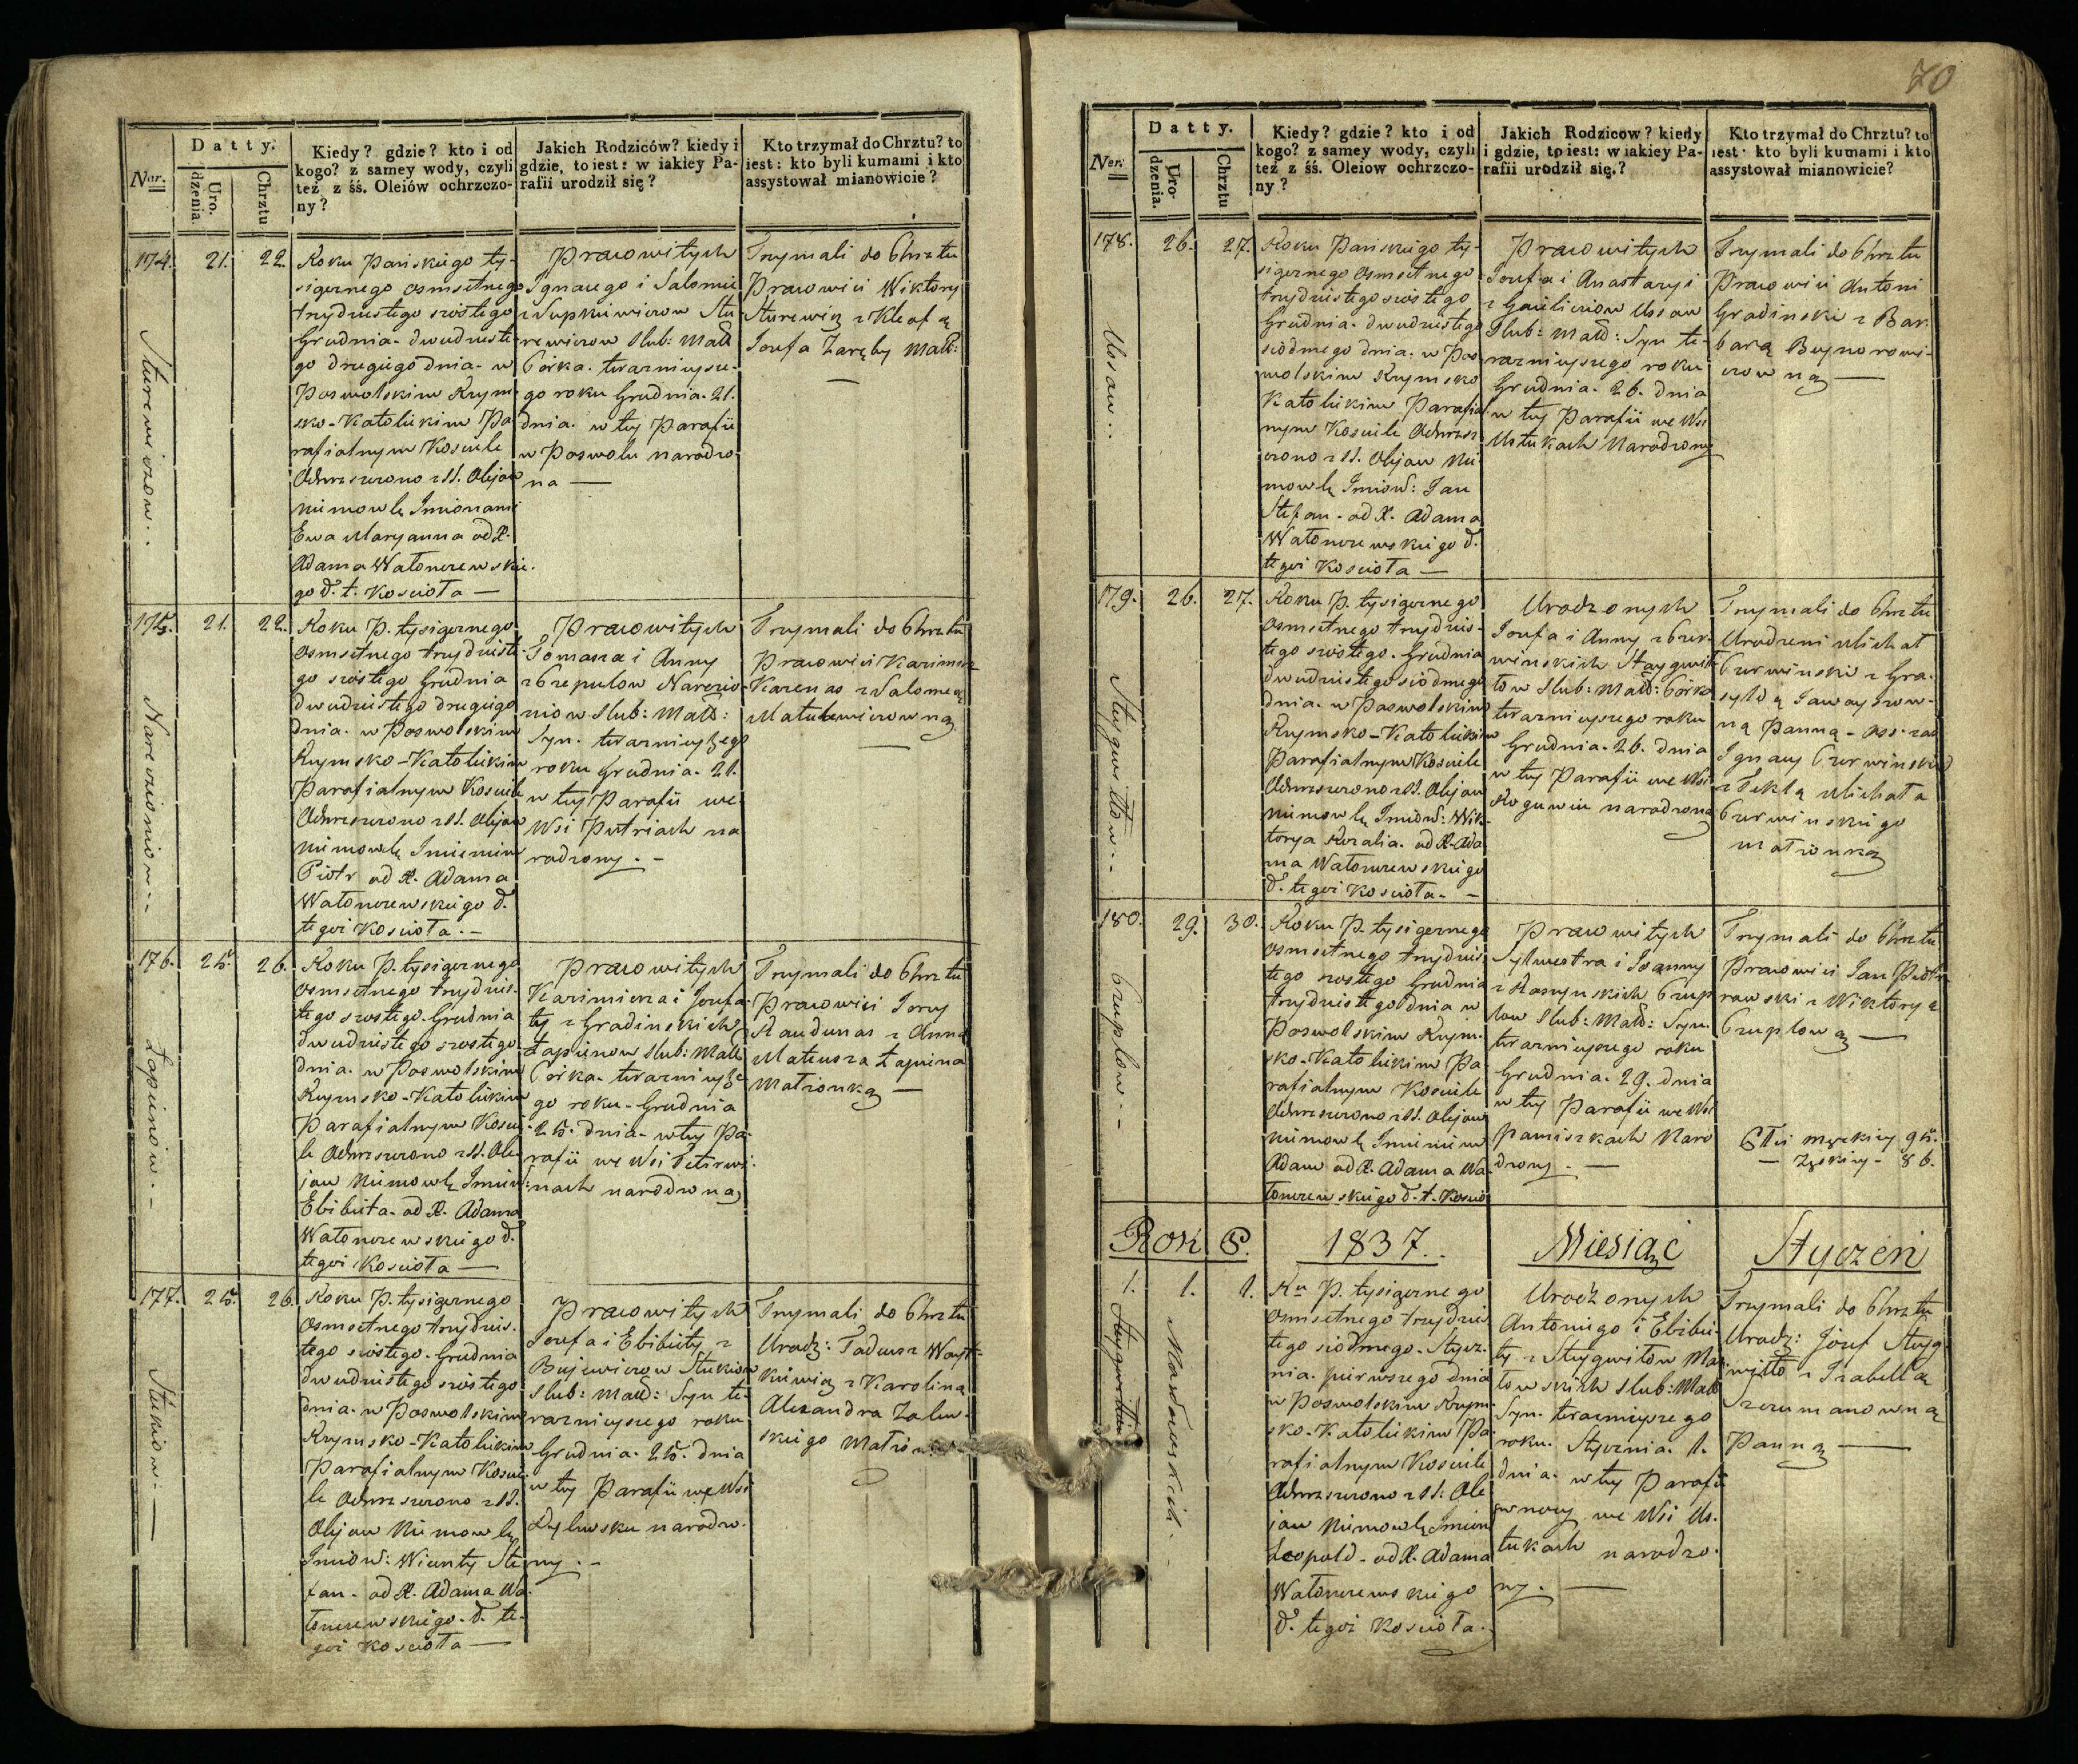 Ner.
Datty.
Uro.
dzenia.
Chrztu
Kiedy? gdzie? kto i od
kogo? z samey wody, czyli
też z śś. Oleiów ochrzczo-
ny?
Jakich Rodziców? kiedy i
gdzie, to iest: w iakiey Pa-
rafii urodził się?
Kto trzymał do Chrztu? to
iest: kto byli kumami i kto
assystował mianowicie?
174.
21.
22.
Roku Pańskiego ty-
sięcznego osmsetnego
trzydziestego szóstego
Grudnia - dwudzieste-
go drugiego dnia - w
Poswolskim Rzym-
sko-Katolickim Pa
rafialnym Kosciele
Ochrzczono z SS. Olejow
niemowlę Imionami
Ewa Maryanna od X.
Adama Watonczewskie-
go d. t. Kosciola —
Prawowitych
Ignacego i Salomei
Córka. terazniejsze-
go roku Grudnia. 21.
dnia. w tej Parafii
w Poswolu narodzo
na —
Trzymali do Chrztu
Prawowici Wiktory
Józefa Zaręby Małż:
175.
21.
22.
Roku P. tysięcznego
osmsetnego trzydzieste-
go szóstego Grudnia
dwudziestego drugiego
dnia. w Poswolskim
Rzymsko-Katolickim
Parafialnym Kosciele
Ochrzczono z SS. Olejow
niemowlę Imieniem
Piotr od X. Adama
Watonczewskiego d.
tegoż Kosciola. —
Prawowitych
Tomasza i Anny
niow Slub: Małż:
Syn. terazniejszego
roku Grudnia. 21.
w tej Parafii we
Wsi Putriach na
rodzony. —
Trzymali do Chrztu
Prawowici Kazimierz
Karenas z Salomeą
176.
25.
26.
Łapienow. —
Roku P. tysięcznego
osmsetnego trzydzies-
tego szóstego. Grudnia
dwudziestego szostego
dnia. w Poswolskim
Rzymsko-Katolickim
Parafialnym Koscie-
le Ochrzczono z SS. Ole-
jow Niemowlę Imien:
Elżbieta. od X. Adama
Watonczewskiego d.
tegoż Kosciola —
Prawowitych
Kazimierza i Józefa-
ty z Gradinskich
Łapienow Slub: Małż
Córka. terazniejsze-
go roku - Grudnia
25. dnia. w tej Pa-
rafii we Wsi
nach narodzona
Trzymali do Chrztu
Prawowici Jerzy
Mateusza Łapiena
Małżonką —
177.
25.
26.
Stukiow. —
Roku P. tysięcznego
osmsetnego trzydzies-
tego szóstego. Grudnia
dwudziestego szóstego
dnia. w Poswolskim
Rzymsko-Katolickim
Parafialnym Koscie-
le Ochrzczono z SS.
Olejow Niemowlę
Imiow: Wicenty Ste
fan. od X. Adama Wa-
tonczewskiego. d. te-
goż Kosciola —
Prawowitych
Józefa i Elżbiety z
Bujewiczow Stukiow
Slub: Małż: Syn te-
razniejszego roku
Grudnia. 25. dnia
w tej Parafii we Wsi
narodzo-
ny. —
Trzymali do Chrztu
Urodz: Tadeusz
z Karolina
Alexandra Zalew-
skiego Małżonk
70
Ner.
Datty.
Uro-
dzenia.
Chrztu
Kiedy? gdzie? kto i od
kogo? z samey wody, czyli
też z śś. Oleiow ochrzczo-
ny?
Jakich Rodzicow? kiedy
i gdzie, to iest: w iakiey Pa-
rafii urodził się.?
Kto trzymał do Chrztu? to
iest: kto byli kumami i kto
assystował mianowicie?
178.
26.
27.
Ussow. .
Roku Pańskiego ty-
sięcznego osmsetnego
trzydziestego szóstego
Grudnia. dwudziestego
siodmego dnia. w Pos-
wolskim Rzymsko
Katolickim Parafial-
nym Kosciele Ochrzcz
czono z SS. Olejow Nie-
mowlę Imiow: Jan
Stefan. od X. Adama
Watonczewskiego d.
tegoż Kosciola —
Prawowitych
Józefa i Anastazyi
Ussow
Slub: Małż: Syn te-
razniejszego roku
Grudnia. 26. dnia
w tej Parafii we Wsi
Ustukach Narodzony
Trzymali do Chrztu
Prawowici Antoni
Gradinski z Bar-
barą Buynorowi-
czowną —
179.
26.
27.
Roku P. tysięcznego
osmsetnego trzydzies-
tego szóstego. Grudnia
dwudziestego siodmego
dnia. w Poswolskim
Rzymsko-Katolickim
Parafialnym Kosciele
Ochrzczono z SS. Olejow
niemowlę Imiow: Wik-
torya Rozalia. od X. Ada
ma Watonczewskiego
d. tegoż Kosciola. —
Urodzonych
Józefa i Anny z Czer-
winskich Staygwił-
łow Slub: Małż: Córka
terazniejszego roku
Grudnia. 26. dnia
w tej Parafii we Wsi
narodzona
Trzymali do Chrztu
Urodzeni Michał
Czerwinski z Gra-
nną Panną - ass: zaś
Ignacy Czerwinski
z Teklą Michała
Czerwinskiego
małżonką
180.
29.
30.
Czuplow. —
Roku P. tysięcznego
osmsetnego trzydzies-
tego szostego Grudnia
trzydziestego dnia w
Poswolskim Rzym-
sko-Katolickim Pa
rafialnym Kosciele
Ochrzczono z SS. Olejow
niemowlę Imieniem
Adam od X. Adama Wa-
tonczewskiego d. t. Koscio
Prawowitych
Sylwestra i Joanny
Czup
low Slub: Małż: Syn.
terazniejszego roku
Grudnia. 29. dnia
w tej Parafii we Wsi
Pamiszkach Naro
dzony. —
Trzymali do Chrztu
Prawowici Jan Piotr
rowski z Wiktoryą
Czuplową —
Płci męzkiey 95.
— Zenskiey - 86.
Rok P.
1837.
Miesiąc
Styczeń
1.
1.
1.
Ru P. tysięcznego
osmsetnego trzydzies
tego siódmego. Stycz-
nia. pierwszego dnia
w Poswolskim Rzym-
sko-Katolickim Pa
rafialnym Kosciele
Ochrzczono z SS: Ole
jow Niemowlę Imien
Leopold. od X. Adama
Watonczewskiego
d. tegoż Kosciola.
Urodzonych
Antoniego i Elżbie-
ty z Staygwiłow
Slub: Małż
Syn. terazniejszego
roku. Stycznia. 1.
dnia. w tej Parafii
we Wsi Us-
tukach narodzo-
ny. —
Trzymali do Chrztu
Urodz: Józef Stayg-
wiłło z Izabellą
Szerumanowną
Panną —